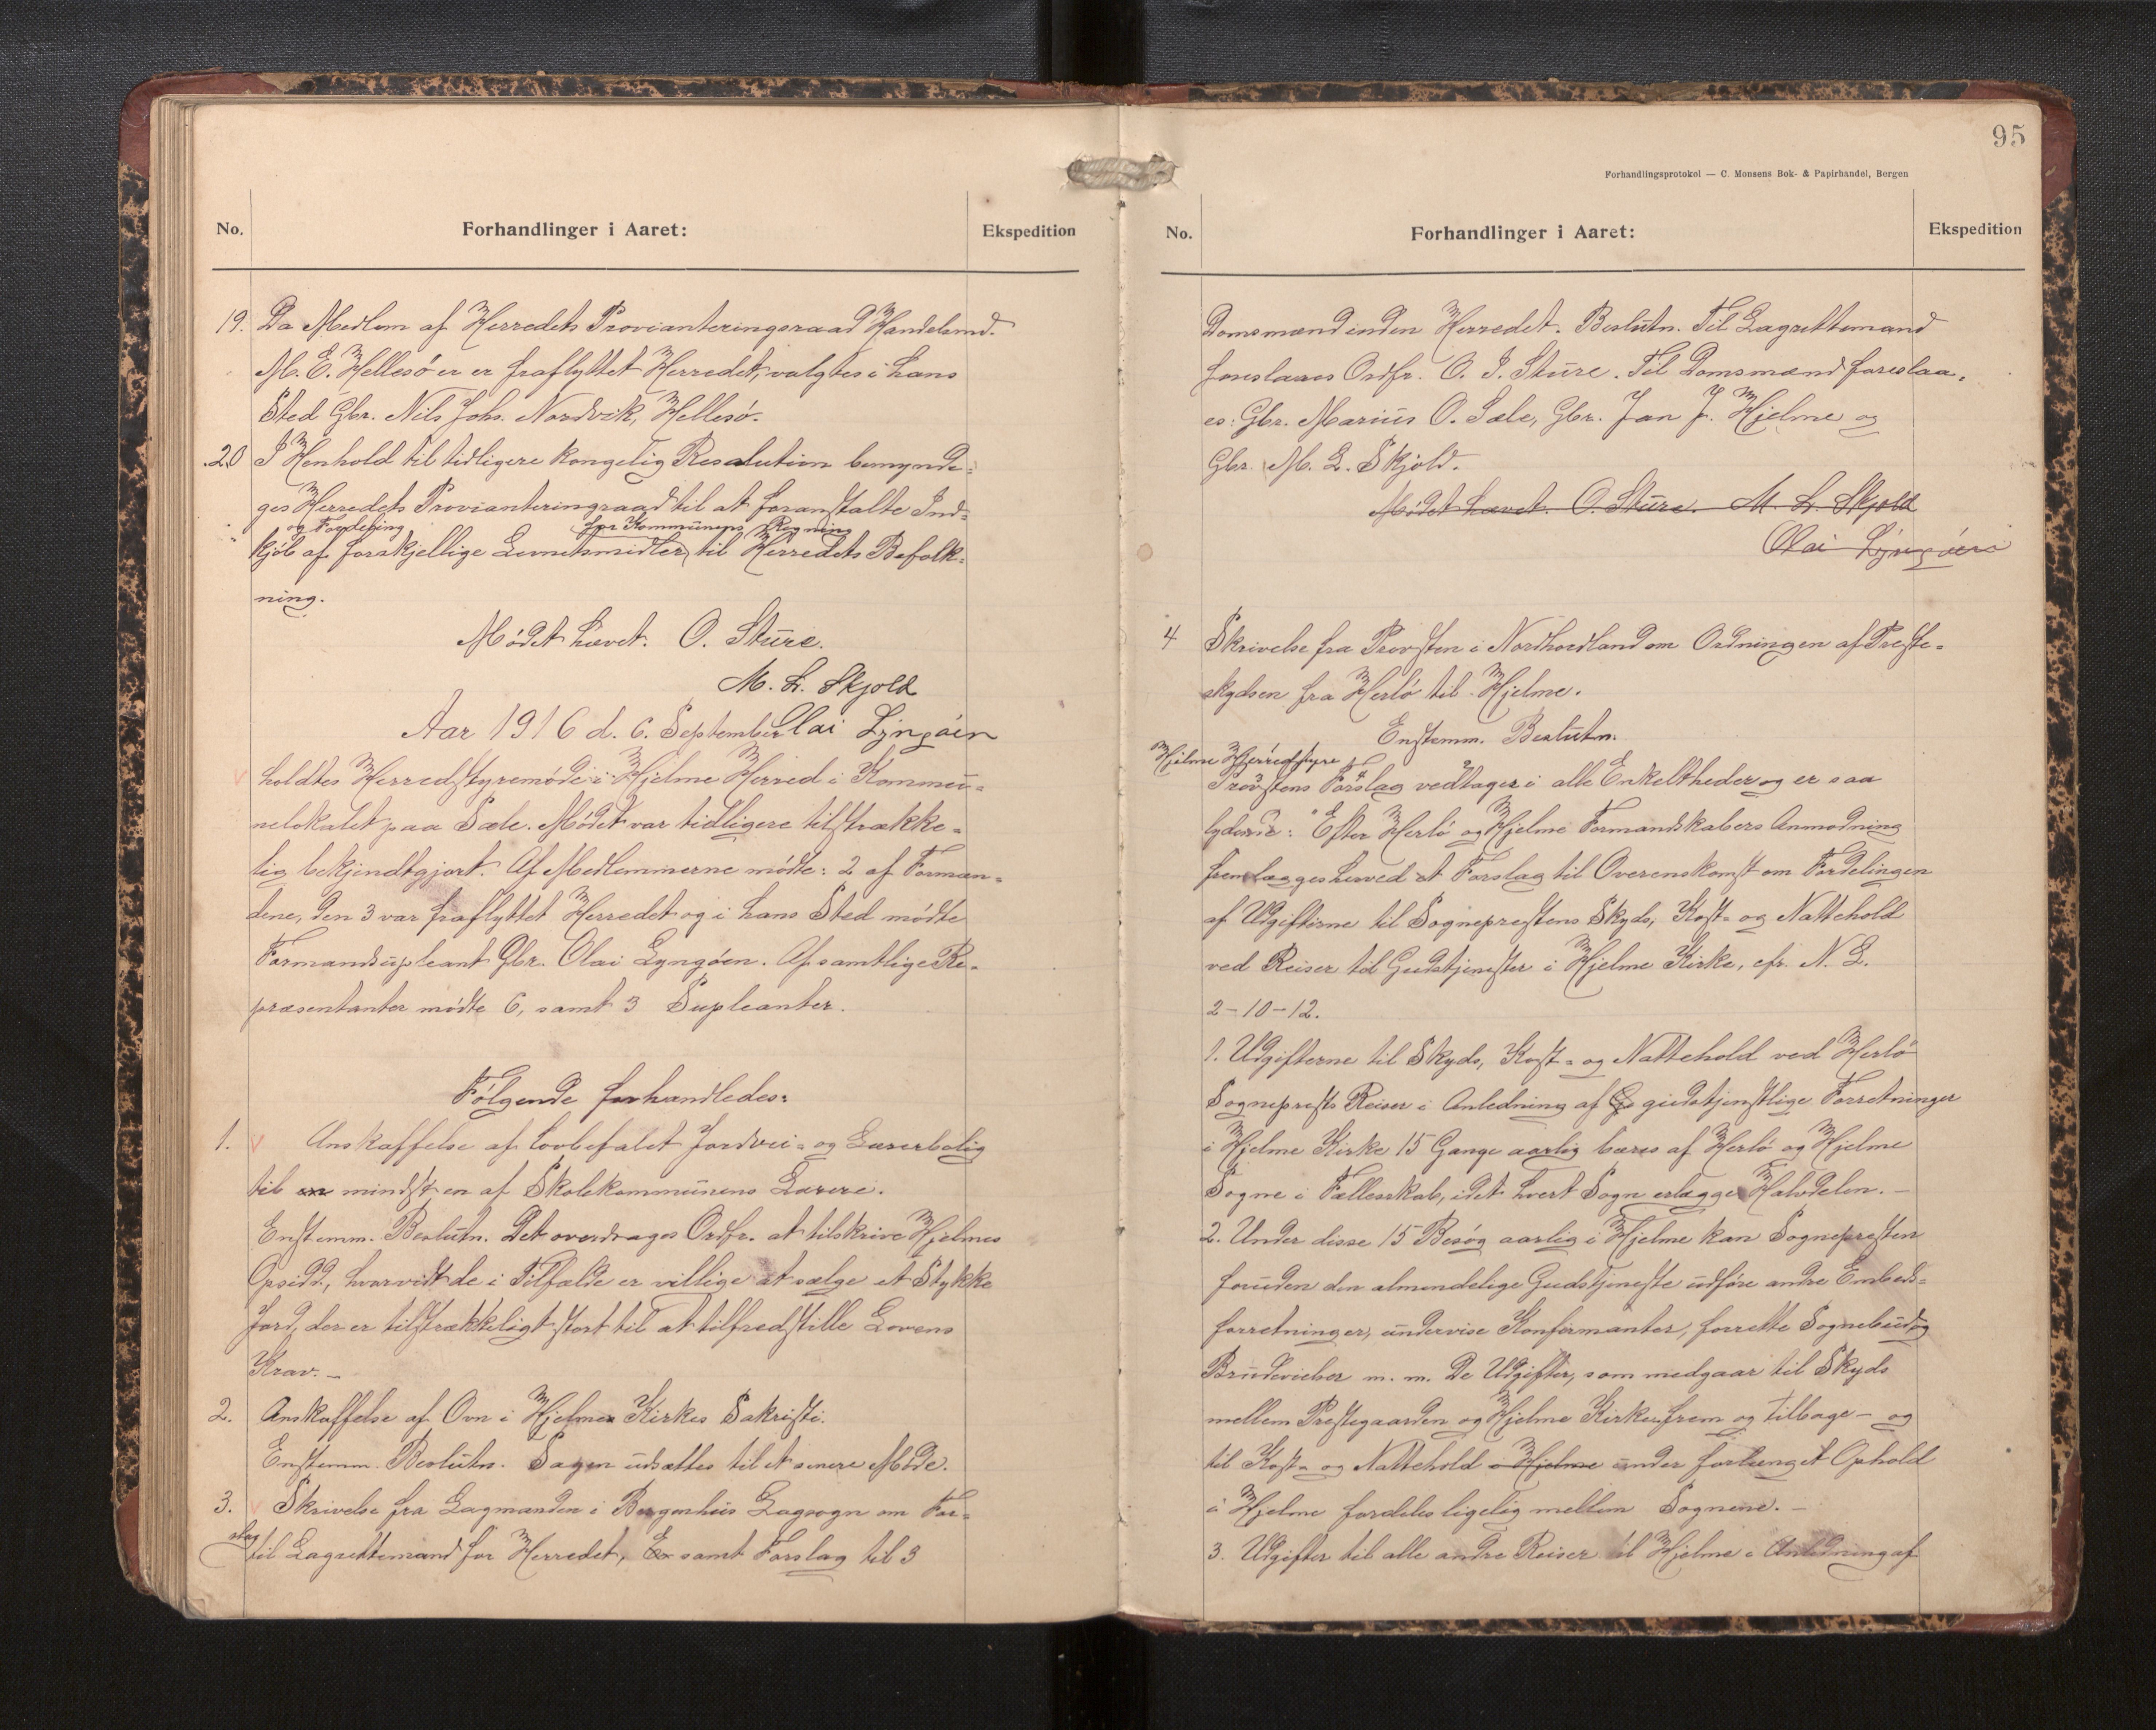 No. Forhandlinger i Aaret: Ekspedition
19. Da Medlem af Herredets Provianteringsraad Handelsmd.
M. E. Hellesø er er fraflyttet Herredet, valgtes i hans
Sted Gbr. Nils Johs. Nordvik, Hellesø.
20 I Henhold til tidligere kongelig Resolution bemynde-
ges Herredets Provianteringsraad til at foranstalte Ind-
og Fordeling for Kommunens Regning
kjøb af forskjellige Levnetsmidler til Herredets Befolk-
ning.
Mødet hævet. O. Sture.
M. L. Skjold
Aar 1916 d. 6. September Olai Lyngøen
holdtes Herredstyremøde i Hjelme Herred i Kommu-
nelokalet paa Sæle. Mødet var tidligere tilstrække-
lig bekjendtgjort. Af Medlemmerne mødte: 2 af Forman-
dene, den 3 var fraflyttet Herredet og i hans Sted mødte
Formandsupleant Gbr. Olai Lyngøen. Af samtlige Re-
præsentanter mødte 6, samt 3 Supleanter.
Følgende forhandledes:
1. Anskaffelse af lovbefalet Jordvei- og Lærerbolig
til en mindst en af Skolekommunens Lærere.
Enstemm. Beslutn. Det overdrages Ordfr. at tilskrive Hjelmes
Opsidd., hvorvidt de i Tilfælde er villige at sælge et Stykke
Jord, der er tilstrækkeligt stort til at tilfredstille Lovens
Krav. –
2. Anskaffelse af Ovn i Hjelme Kirkes Sakristi.
Enstemm. Beslutn. Sagen udsættes til et senere Møde.
3. Skrivelse fra Lagmanden i Bergenhus Lagsogn om For-
slag til Lagrettemand for Herredet, En samt Forslag til 3
95
Forhandlingsprotokol — C. Monsens Bok- & Papirhandel, Bergen
No. Forhandlinger i Aaret: Ekspedition
Domsmænd inden Herredet. Beslutn. Til Lagrettemand
foreslaaes Ordfr. O. I. Sture. Til Domsmænd foreslaa-
es: Gbr. Marius O. Sæle, Gbr. Jan J. Hjelme og
Gbr. M. L. Skjold.
Mødet hævet. O. Sture. M. L. Skjold
Olai Lyngøen
4 Skrivelse fra Provsten i Nordhordland om Ordningen af Preste-
skydsen fra Herlø til Hjelme.
Enstemm. Beslutn.
Hjelme Herredstyre
Provstens Forslag vedtager i alle Enkeltheder og er saa
lydende: "Efter Herlø og Hjelme Formandskabers Anmodning
fremlægges herved et Forslag til Overenskomst om Fordelingen
af Udgifterne til Sogneprestens Skyds, Kost- og Nattehold
ved Reiser til Gudstjenester i Hjelme Kirke, cfr. N. L.
2-10-12.
1. Udgifterne til Skyds, Kost- og Nattehold ved Herlø
Sogneprests Reiser i Anledning af gudstjenstlige Forretninger
i Hjelme Kirke 15 Gange aarlig bæres af Herlø og Hjelme
Sogne i Fællesskab, idet hvert Sogn erlægger Halvdelen. –
2. Under disse 15 Besøg aarlig i Hjelme kan Sognepresten
foruden den almindelige Gudstjeneste udføre andre Embeds-
forretninger, undervise Konfirmanter, forrette Sognebud og
Brudevielser m. m. De Udgifter, som medgaar til Skyds
mellem Prestegaarden og Hjelme Kirke frem og tilbage – og
til Kost- og Nattehold i Hjelme under forlænget Ophold
i Hjelme fordeles ligelig mellem Sognene. –
3. Udgifter til alle andre Reiser til Hjelme i Anledning af